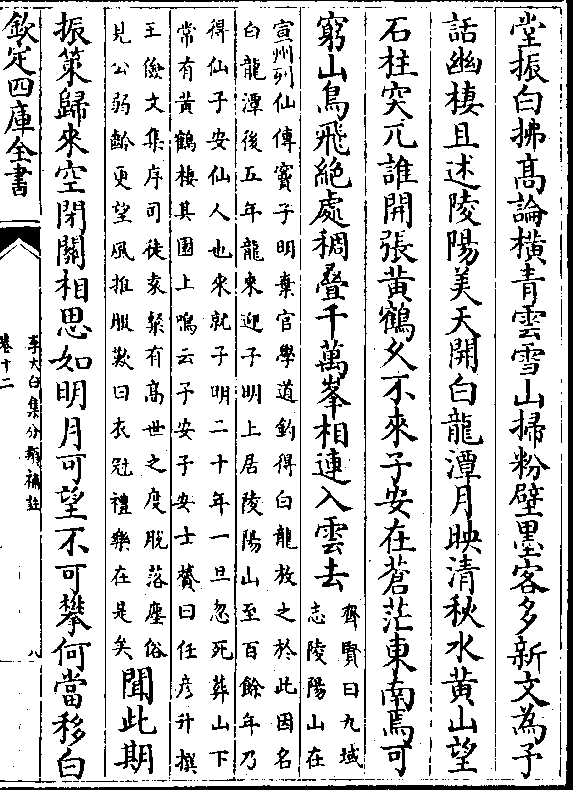 堂振白拂高論横青雲雪山掃粉壁墨客多新文為予
話幽棲且述陵陽美天開白龍潭月映清秋水黄山望
石柱突兀誰開張黄鶴乆不來子安在蒼茫東南焉可
窮山鳥飛絶處稠叠千萬峯相連入雲去
齊賢曰九域
志陵陽山在
宣州列仙傳竇子明棄官學道釣得白龍放之於此因名
白龍潭後五年龍來迎子明上居陵陽山至百餘年乃
得仙子安仙人也來就子明二十年一旦忽死葬山下
常有黄鶴棲其圍上鳴云子安子安士贇曰任彦升撰
王儉文集序司徒袁粲有髙世之度脱落塵俗
見公弱齡更望風推服歎曰衣冠禮樂在是矣
聞此期
振策歸來空閉關相思如明月可望不可攀何當移白
欽定四庫全書
李太白集分類補註
卷十二
八